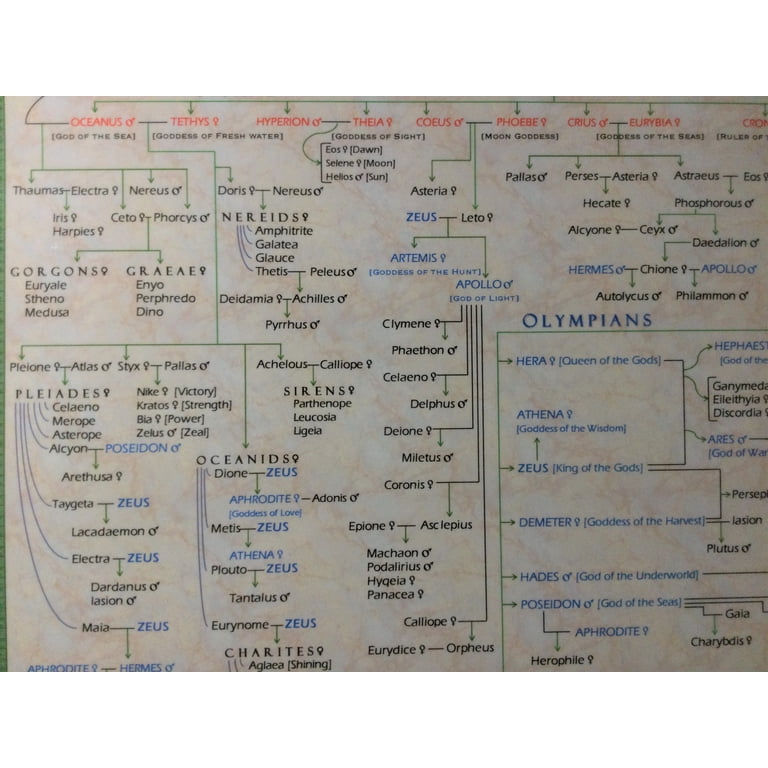 OCEANUS ♂ TETHYS ♀ HYPERION ♂ THEIA ♀ COEUS ♂ PHOEBE ♀ CRIUS ♂ EURYBIA ♀ CRON
[GOD OF THE SEA] [GODDESS OF FRESH WATER] [GODDESS OF SIGHT] [MOON GODDESS] [GODDESS OF THE SEAS] [RULER OF
Eos ♀ [Dawn]
Selene ♀ [Moon]
Helios ♂ [Sun]
Thaumas Electra ♀ Nereus ♂ Doris ♀ Nereus ♂ Asteria ♀ Pallas ♂ Perses Asteria ♀ Astraeus Eos ♀
Iris ♀
Harpies ♀
Ceto ♀ Phorcys ♂
NEREIDS ♀
Amphitrite
Galatea
Glauce
Thetis Peleus ♂
ZEUS Leto ♀
Hecate ♀ Phosphorous ♂
Alcyone ♀ Ceyx ♂
Daedalion ♂
ARTEMIS ♀
[GODDESS OF THE HUNT]
APOLLO ♂
[GOD OF LIGHT]
HERMES ♂ Chione ♀ APOLLO ♂
Autolycus ♂ Philammon ♂
GORGONS ♀
Euryale
Stheno
Medusa
GRAEAE ♀
Enyo
Perphredo
Dino
Deidamia ♀ Achilles ♂
Pyrrhus ♂
Clymene ♀
Phaethon ♂
Celaeno ♀
Delphus ♂
Deione ♀
Miletus ♂
Coronis ♀
Epione ♀ Asclepius
Machaon ♂
Podalirius ♂
Hyqeia ♀
Panacea ♀
Calliope ♀
Eurydice ♀ Orpheus
Pleione ♀ Atlas ♂ Styx ♀ Pallas ♂ Achelous Calliope ♀
PLEIADES ♀
Celaeno
Merope
Asterope
Alcyon POSEIDON ♂
Arethusa ♀
Taygeta ZEUS
Lacadaemon ♂
Electra ZEUS
Dardanus ♂
Iasion ♂
Maia ZEUS
APHRODITE ♀ HERMES ♂
Nike ♀ [Victory]
Kratos ♀ [Strength]
Bia ♀ [Power]
Zelus ♂ [Zeal]
SIRENS ♀
Parthenope
Leucosia
Ligeia
OCEANIDS ♀
Dione ZEUS
APHRODITE ♀ Adonis ♂
[Goddess of Love]
Metis ZEUS
ATHENA ♀
Plouto ZEUS
Tantalus ♂
Eurynome ZEUS
CHARITES ♀
Aglaea [Shining]
OLYMPIANS
HERA ♀ [Queen of the Gods]
HEPHAEST
[God of the
Ganymeda
Eileithyia
Discordia
ATHENA ♀
[Goddess of the Wisdom]
ARES ♂
[God of War
ZEUS [King of the Gods]
Perseph
DEMETER ♀ [Goddess of the Harvest] Iasion
Plutus ♂
HADES ♂ [God of the Underworld]
POSEIDON ♂ [God of the Seas]
Gaia
APHRODITE ♀
Charybdis ♀
Herophile ♀